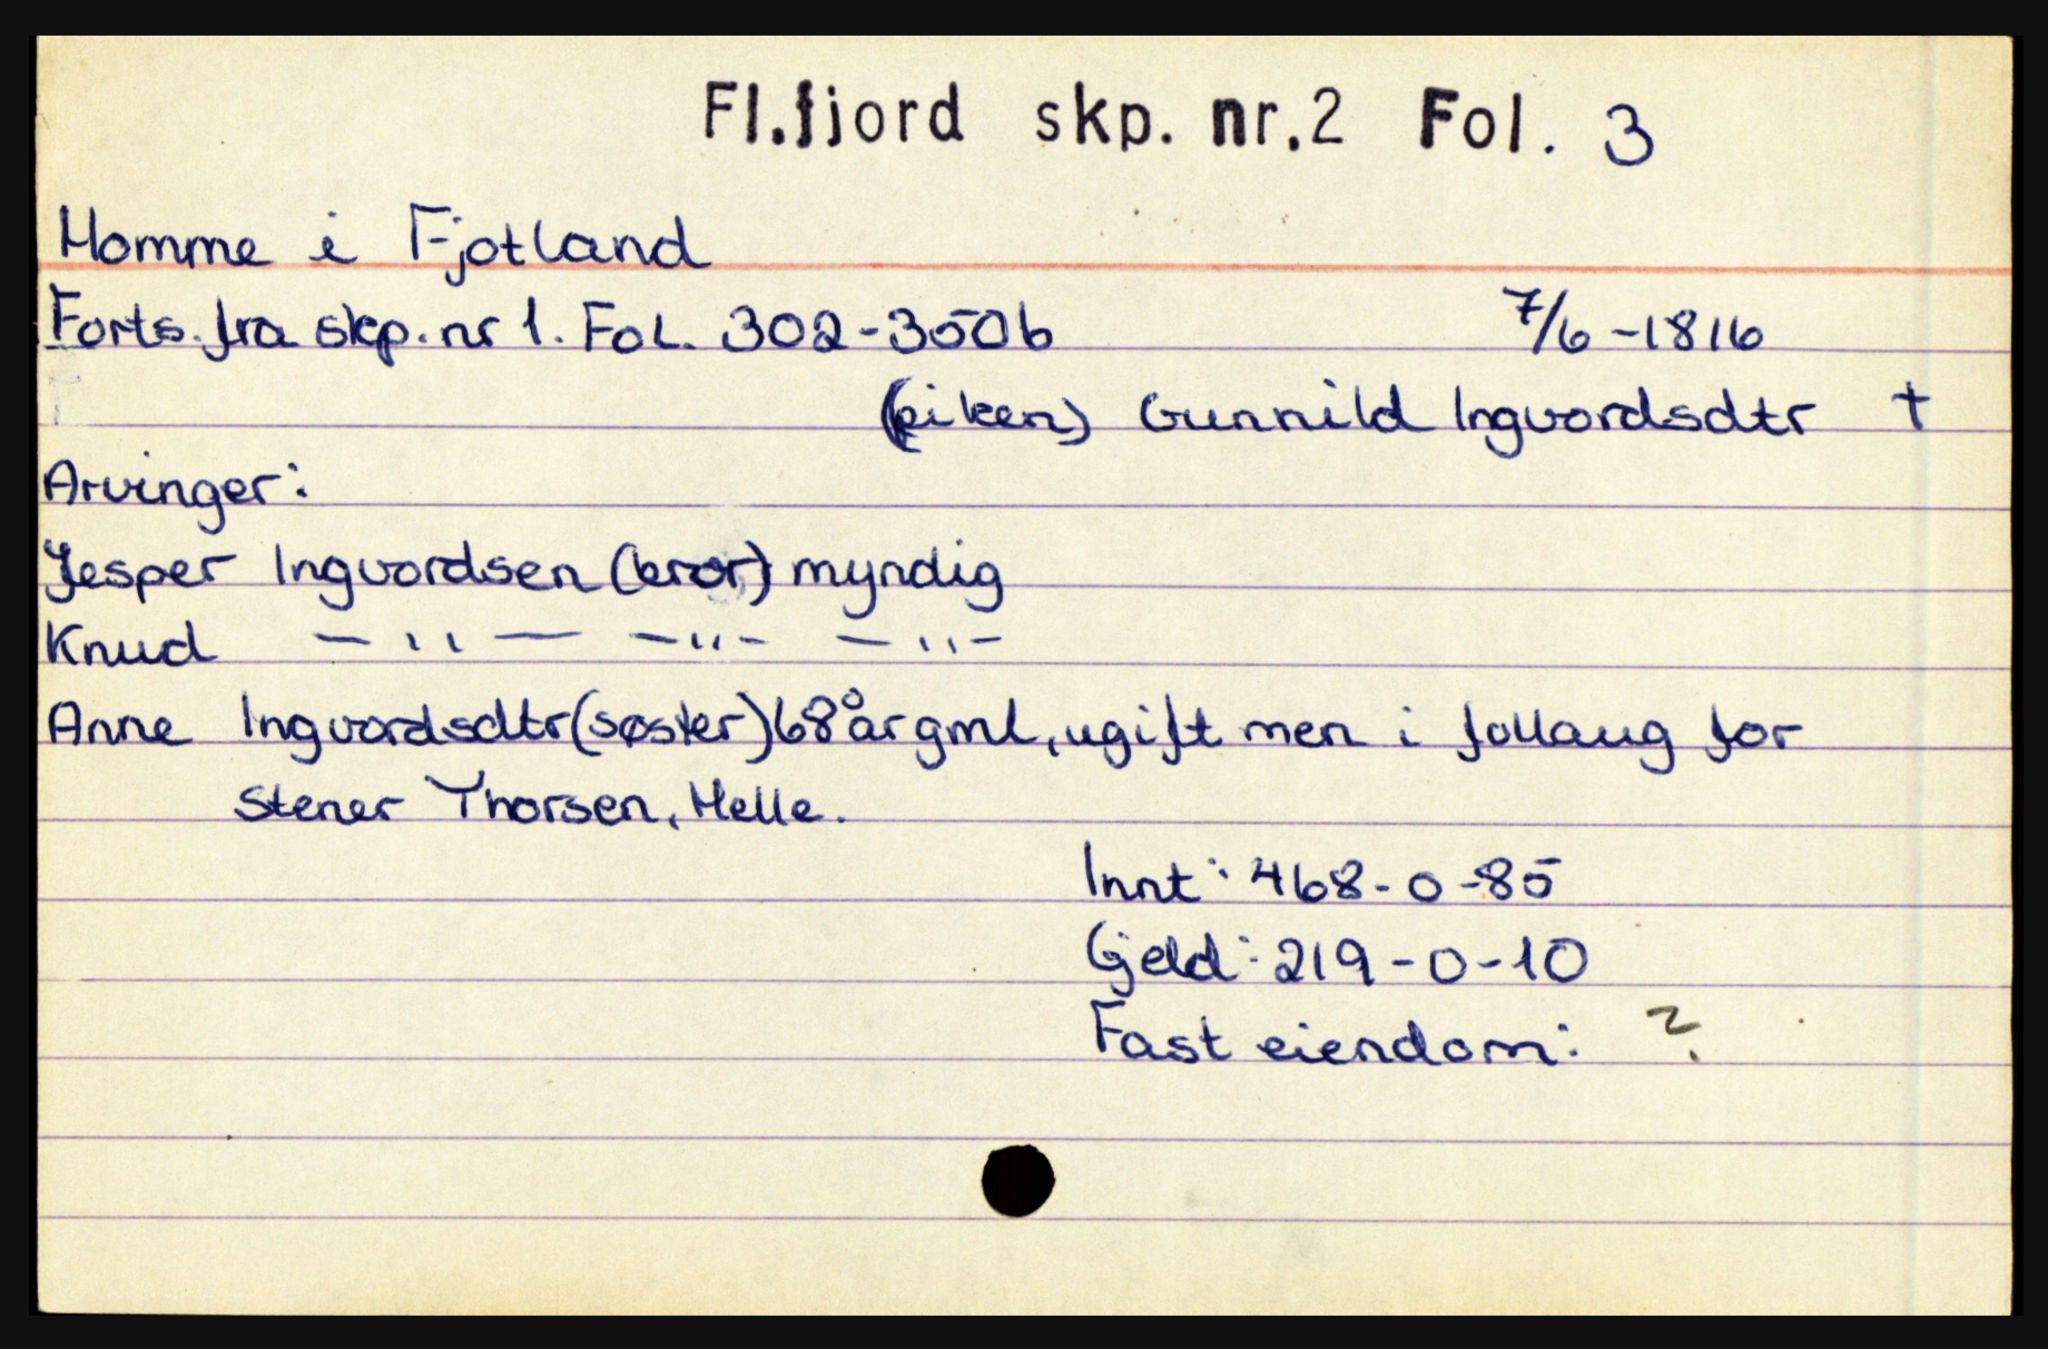 Fl.fjord skp. nr.2 Fol. 3
Homme i Fjotland
Forts. fra skp. nr 1. Fol. 302-350b 7/6 -1816
(piken) Gunnild Ingvordsdtr †
Arvinger:
Jesper Ingvordsen (bror) myndig
Knud — ,, — — ,, — — ,, —
Anne Ingvordsdtr (søster) 68 år gml, ugift men i follaug for
Stener Thorsen, Helle.
Innt: 468-0-85
Gjeld: 219-0-10
Fast eiendom: ?